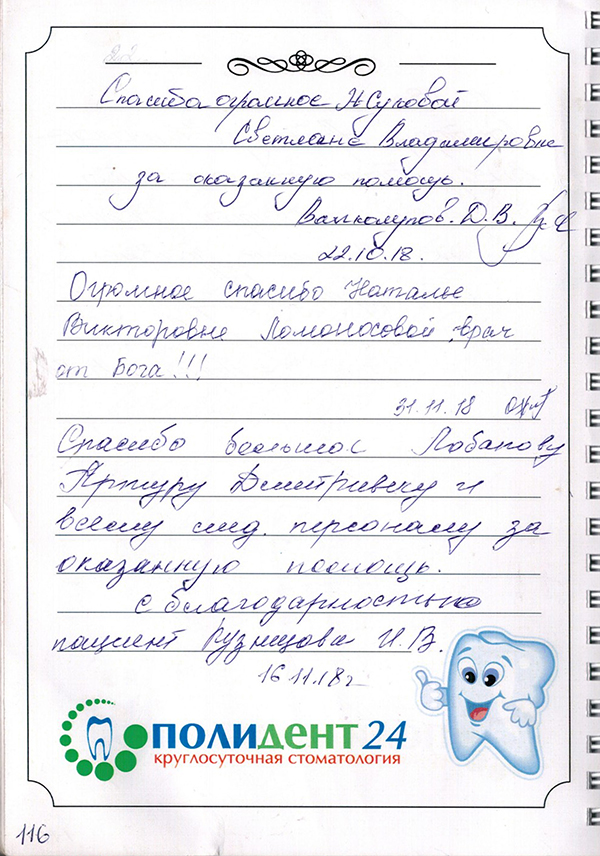 Спасибо огромное Жуковой
Светлане Владимировне
за оказанную помощь.
Д.В.
22.10.18.
Огромное спасибо Наталье
Викторовне Ломоносовой, врач
от Бога!!!
31.11.18
Спасибо большое Лобанову
Артуру Дмитривечу и
всему мед. персоналу за
оказанную помощь.
с благодарностью
пациент Кузнецова И.В.
16 11.18г
ПОЛИДЕНТ 24
круглосуточная стоматология
116